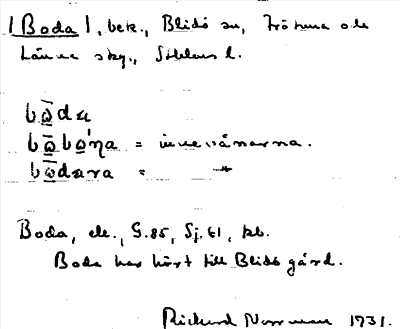 [Boda], bek., Blidö sn, Frötuna och
Länna skg., Sthlms l.
bω̄da
bω̄bωηa = innevånarna.
bω̄darna = "
Boda, ele., G. 85, Sj. 61, kb.
Boda har hört till Blidö gård.
Richard Norrman 1931.